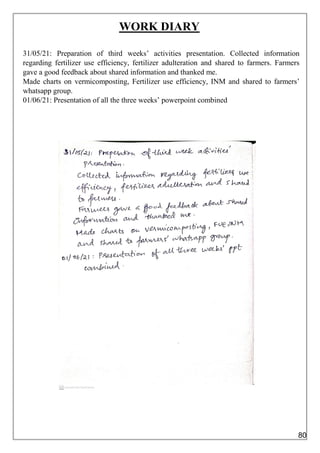 WORK DIARY
31/05/21: Preparation of third weeks' activities presentation. Collected information
regarding fertilizer use efficiency, fertilizer adulteration and shared to farmers. Farmers
gave a good feedback about shared information and thanked me.
Made charts on vermicomposting, Fertilizer use efficiency, INM and shared to farmers'
whatsapp group.
01/06/21: Presentation of all the three weeks' powerpoint combined
31/05/21: Preparation of third week activities'
presentation.
Collected information regarding fertilizer use
efficiency, fertilizer adulteration and shared
to farmers.
Farmers gave a good feedback about shared
information and thanked me.
Made charts on vermicomposting, FUE, INM
and shared to farmers' whatsapp group.
01/06/21: Presentation of all three weeks' ppt
combined.
80